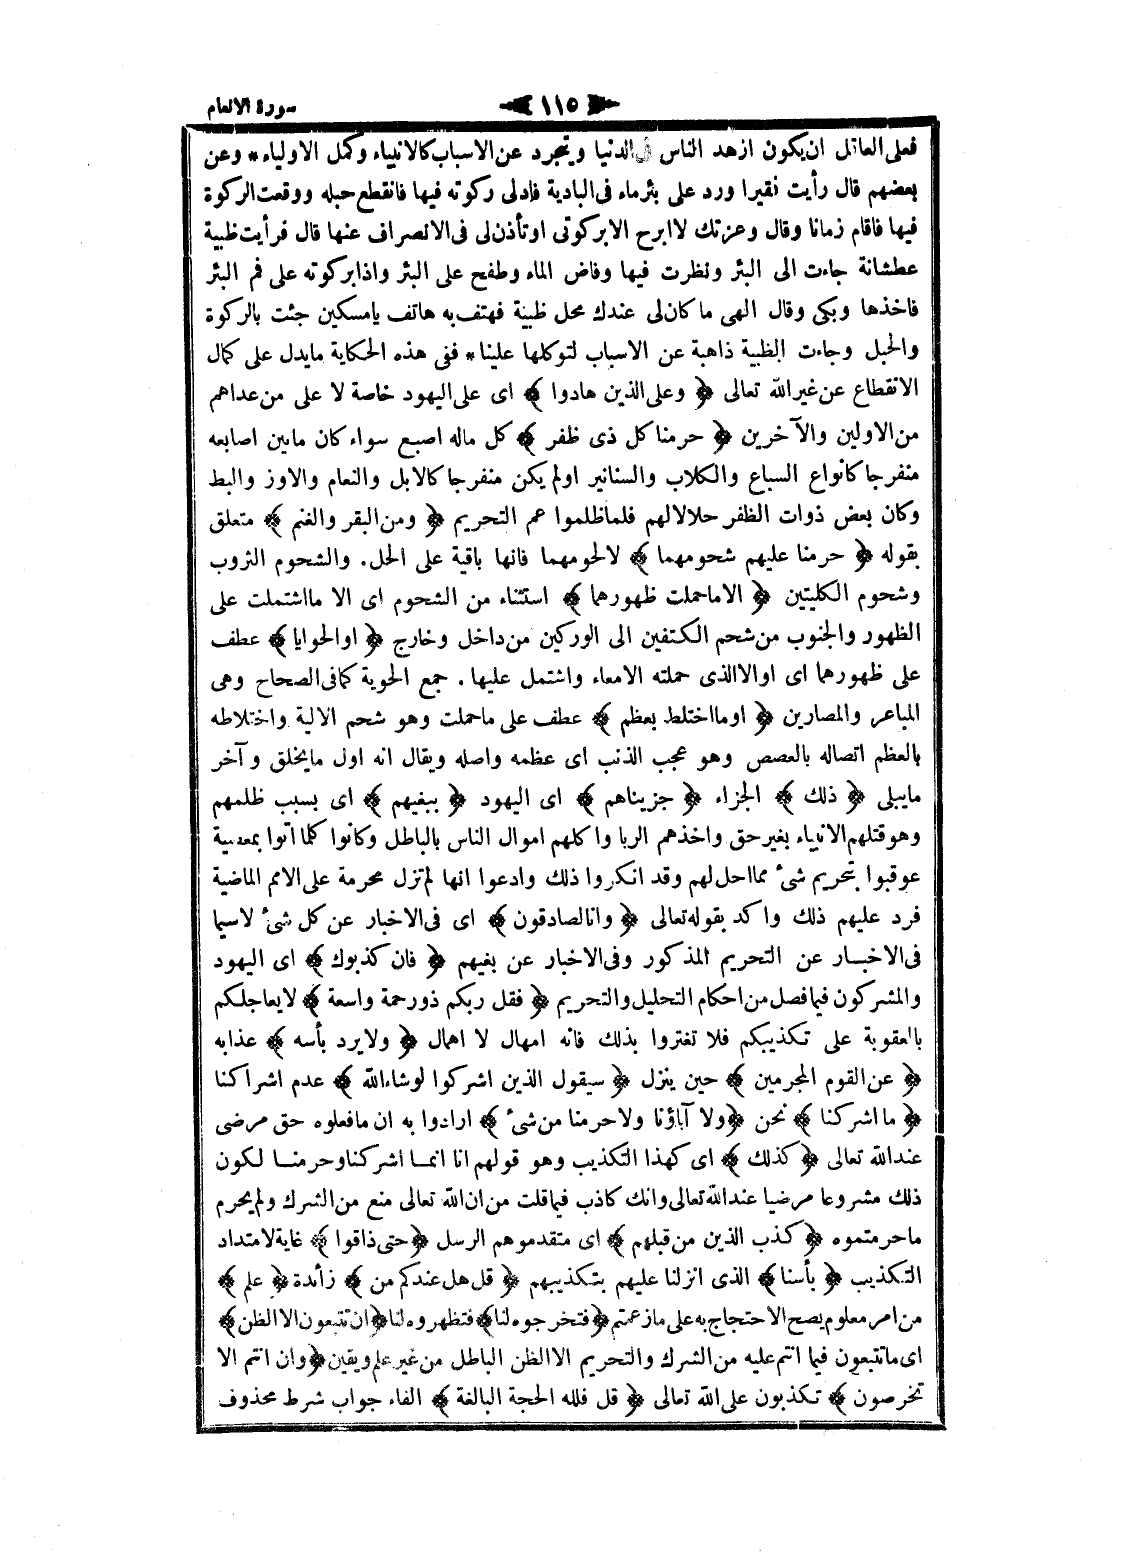 سورة الانعام
١١٥
فعلى العاقل ان يكون ازهد الناس فى الدنيا ويتجرد عن الاسباب كالانبياء وكمل الاولياء * وعن
بعضهم قال رأيت نقيرا ورد على بئر ماء فى البادية فادلى ركوته فيها فانقطع حبله ووقعت الركوة
فيها فاقام زمانا وقال وعزتك لا ابرح الا بركوتى او تأذن لى فى الانصراف عنها قال فرأيت ظبية
عطشانة جاءت الى البئر ونظرت فيها وفاض الماء وطفح على البئر واذا بركوته على فم البئر
فاخذها وبكى وقال الهى ما كان لى عندك محل ظبية فهتف به هاتف يا مسكين جئت بالركوة
والحبل وجاءت الظبية ذاهبة عن الاسباب لتوكلها علينا * ففى هذه الحكاية مايدل على كمال
الانقطاع عن غير الله تعالى ﴿ وعلى الذين هادوا ﴾ اى على اليهود خاصة لا على من عداهم
من الاولين والآخرين ﴿ حرمنا كل ذى ظفر ﴾ كل ماله اصبع سواء كان مابين اصابعه
منفرجا كانواع السباع والكلاب والسنانير اولم يكن منفرجا كالابل والنعام والاوز والبط
وكان بعض ذوات الظفر حلالا لهم فلما ظلموا عم التحريم ﴿ ومن البقر والغنم ﴾ متعلق
بقوله ﴿ حرمنا عليهم شحومهما ﴾ لا لحومهما فانها باقية على الحل. والشحوم الثروب
وشحوم الكليتين ﴿ الا ماحملت ظهورهما ﴾ استثناء من الشحوم اى الا ما اشتملت على
الظهور والجنوب من شحم الكتفين الى الوركين من داخل وخارج ﴿ او الحوايا ﴾ عطف
على ظهورهما اى اوالاالذى حملته الامعاء واشتمل عليها . جمع الحوية كمافى الصحاح وهى
المباعر والمصارين ﴿ اوما اختلط بعظم ﴾ عطف على ماحملت وهو شحم الالية واختلاطه
بالعظم اتصاله بالعصص وهو عجب الذنب اى عظمه واصله ويقال انه اول مايخلق وآخر
مايبلى ﴿ ذلك ﴾ الجزاء ﴿ جزيناهم ﴾ اى اليهود ﴿ ببغيهم ﴾ اى بسبب ظلمهم
وهو قتلهم الانبياء بغير حق واخذهم الربا واكلهم اموال الناس بالباطل وكانوا كلما اتوا بمعصية
عوقبوا بتحريم شئ مما احل لهم وقد انكروا ذلك وادعوا انها لم تزل محرمة على الامم الماضية
فرد عليهم ذلك واكد بقوله تعالى ﴿ وانا لصادقون ﴾ اى فى الاخبار عن كل شئ لاسيما
فى الاخبار عن التحريم المذكور وفى الاخبار عن بغيهم ﴿ فان كذبوك ﴾ اى اليهود
والمشركون فيما فصل من احكام التحليل والتحريم ﴿ فقل ربكم ذو رحمة واسعة ﴾ لايعاجلكم
بالعقوبة على تكذيبكم فلا تغتروا بذلك فانه امهال لا اهمال ﴿ ولا يرد بأسه ﴾ عذابه
﴿ عن القوم المجرمين ﴾ حين ينزل ﴿ سيقول الذين اشركوا لو شاء الله ﴾ عدم اشراكنا
﴿ ما اشركنا ﴾ نحن ﴿ ولا آباؤنا ولا حرمنا من شئ ﴾ ارادوا به ان مافعلوه حق مرضى
عند الله تعالى ﴿ كذلك ﴾ اى كهذا التكذيب وهو قولهم انا انما اشركنا وحرمنا لكون
ذلك مشروعا مرضيا عند الله تعالى وانك كاذب فيما قلت من ان الله تعالى منع من الشرك ولم يحرم
ماحرمتموه ﴿ كذب الذين من قبلهم ﴾ اى متقدموهم الرسل ﴿ حتى ذاقوا ﴾ غاية لامتداد
التكذيب ﴿ بأسنا ﴾ الذى انزلنا عليهم بتكذيبهم ﴿ قل هل عندكم من ﴾ زائدة ﴿ علم ﴾
من امر معلوم يصح الاحتجاج به على مازعمتم ﴿ فتخرجوه لنا ﴾ فتظهروه لنا ﴿ ان تتبعون الا الظن ﴾
اى ماتتبعون فيما انتم عليه من الشرك والتحريم الا الظن الباطل من غير علم ويقين ﴿ وان انتم الا
تخرصون ﴾ تكذبون على الله تعالى ﴿ قل فلله الحجة البالغة ﴾ الفاء جواب شرط محذوف